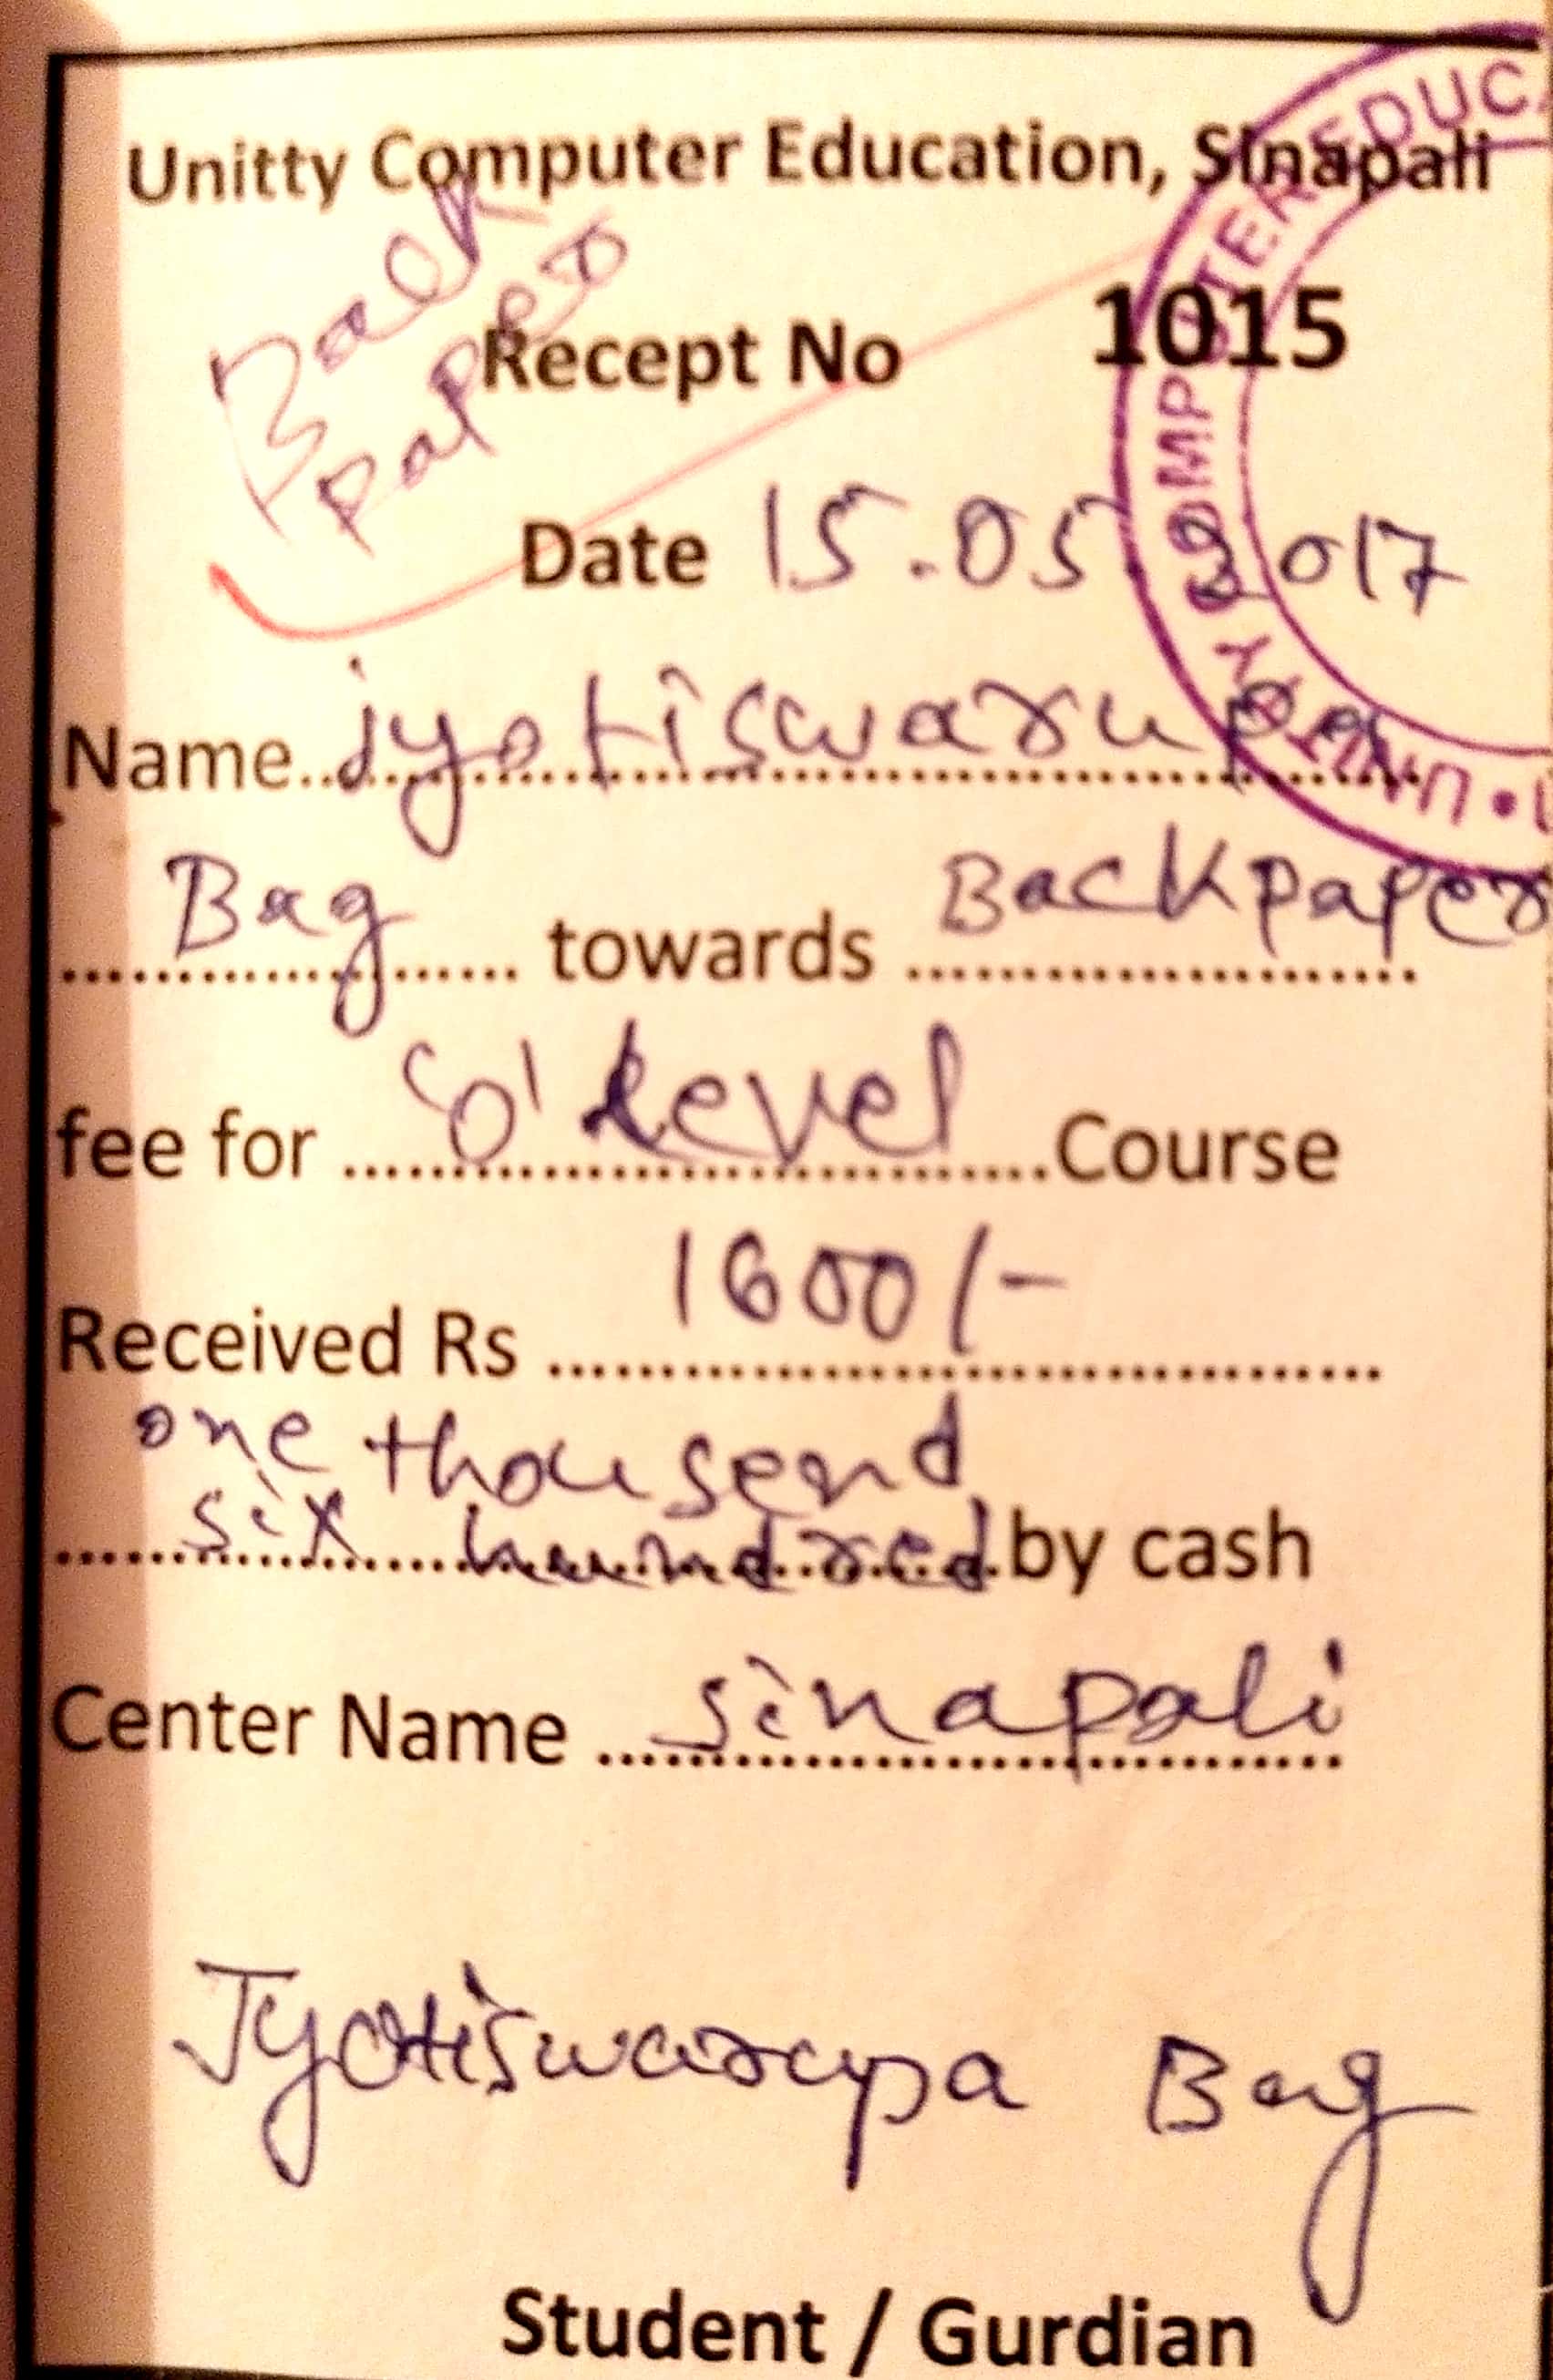 Unitty Computer Education, Sinapali
Back
paper
Recept No 1015
Date 15.05.2017
Name...jyotiswarupa
Bag towards Backpaper
fee for 'O' Level Course
Received Rs 1600/-
one thousend
six hundred by cash
Center Name sinapali
Jyotiswarupa Bag
Student / Gurdian